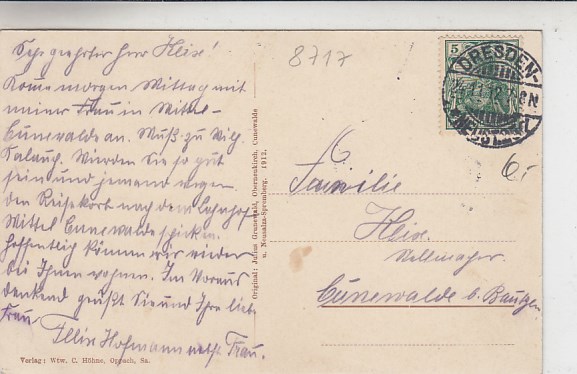 Sehr geehrter Herr Heixe!
Komme morgen Mittag mit
meiner Frau in Mittel-
Cunewalde an. Muß zu Wilh.
Kalauch. Würden Sie so gut
sein und jemand wegen
den Reisekorb nach dem Bahnhof
Mittel Cunewalde schicken.
Hoffentlich können wir wieder
bei Ihnen wohnen. Im Voraus
dankend grüßt Sie und Ihre liebe
Frau
Hofmann nebst Frau.
Verlag: Wtw. C. Höhne, Oppach, Sa.
Original: Julius Grunewald, Oberneukirch, Cunewalde
u. Neusalza-Spremberg. 1912.
8717
5
DRESDEN-
NEUST.
6.-
Familie
Heixe.
Cunewalde b. Bautzen